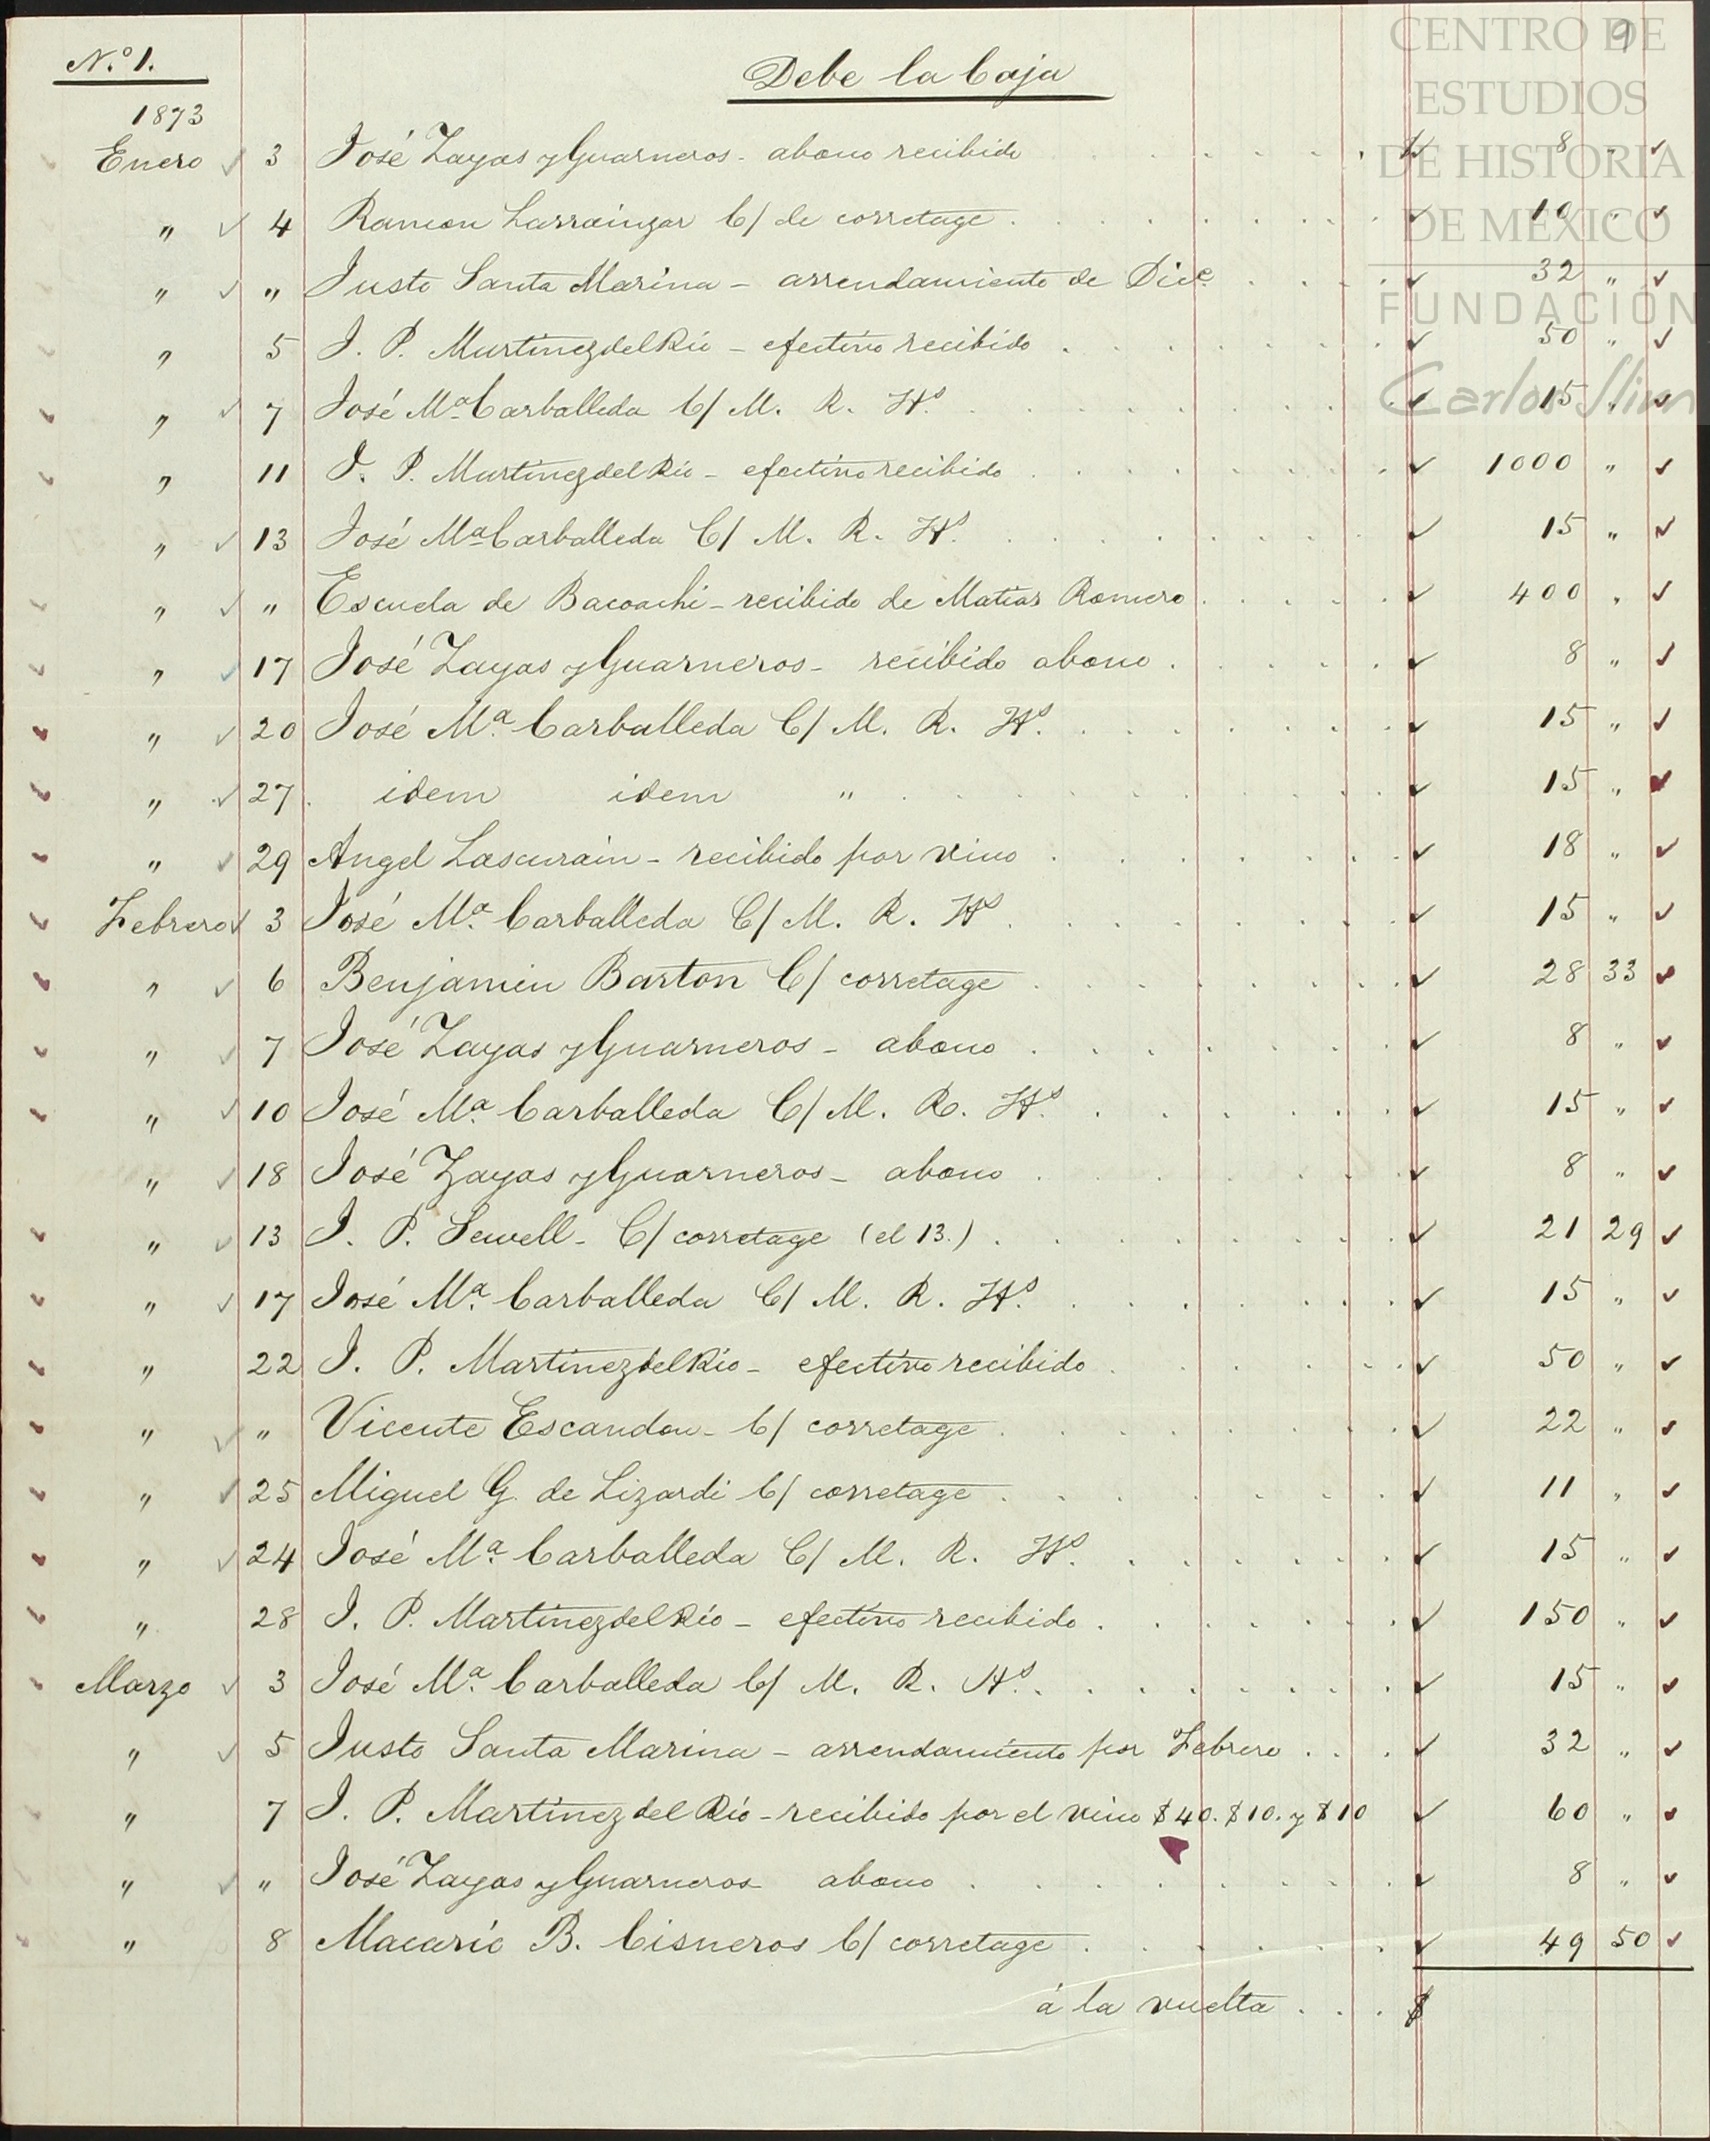 9
N.º 1.
Debe la Caja
1873
Enero 3 José Zayas y Guarneros - abono recibido . . . . . $ 8 "
" 4 Ramon Larrainzar C/ de corretage . . . . . 10 "
" " Justo Santa Marina - arrendamiento de Dice. . . . . 32 "
" 5 J. P. Martinez del Rio - efectivo recibido . . . . . 50 "
" 7 José Ma. Carballeda C/ M. R. Hs. . . . . . 15 "
" 11 J. P. Martinez del Rio - efectivo recibido . . . . . 1000 "
" 13 José Ma. Carballeda C/ M. R. Hs. . . . . . 15 "
" " Escuela de Bacoachi - recibido de Matias Romero . . . . . 400 "
" 17 José Zayas y Guarneros - recibido abono . . . . . 8 "
" 20 José Ma. Carballeda C/ M. R. Hs. . . . . . 15 "
" 27 idem idem " . . . . . 15 "
" 29 Angel Lascurain - recibido por vino . . . . . 18 "
Febrero 3 José Ma. Carballeda C/ M. R. Hs . . . . . 15 "
" 6 Benjamin Barton C/ corretage . . . . . 28 33
" 7 José Zayas y Guarneros - abono . . . . . 8 "
" 10 José Ma. Carballeda C/ M. R. Hs. . . . . . 15 "
" 18 José Zayas y Guarneros - abono . . . . . 8 "
" 13 J. P. Sewell - C/ corretage (el 13.) . . . . . 21 29
" 17 José Ma. Carballeda C/ M. R. Hs. . . . . . 15 "
" 22 J. P. Martinez del Rio - efectivo recibido . . . . . 50 "
" " Vicente Escandon - C/ corretage . . . . . 22 "
" 25 Miguel G. de Lizardi C/ corretage . . . . . 11 "
" 24 José Ma. Carballeda C/ M. R. Hs. . . . . . 15 "
" 28 J. P. Martinez del Rio - efectivo recibido . . . . . 150 "
Marzo 3 José Ma. Carballeda C/ M. R. Hs. . . . . . 15 "
" 5 Justo Santa Marina - arrendamiento por Febrero . . . 32 "
" 7 J. P. Martinez del Rio - recibido por el vino $40. $10. y $10 60 "
" " José Zayas y Guarneros abono . . . . . 8 "
" 8 Macario B. Cisneros C/ corretage . . . . . 49 50
á la vuelta . . . $
CENTRO DE
ESTUDIOS
DE HISTORIA
DE MÉXICO
FUNDACIÓN
Carlos Slim